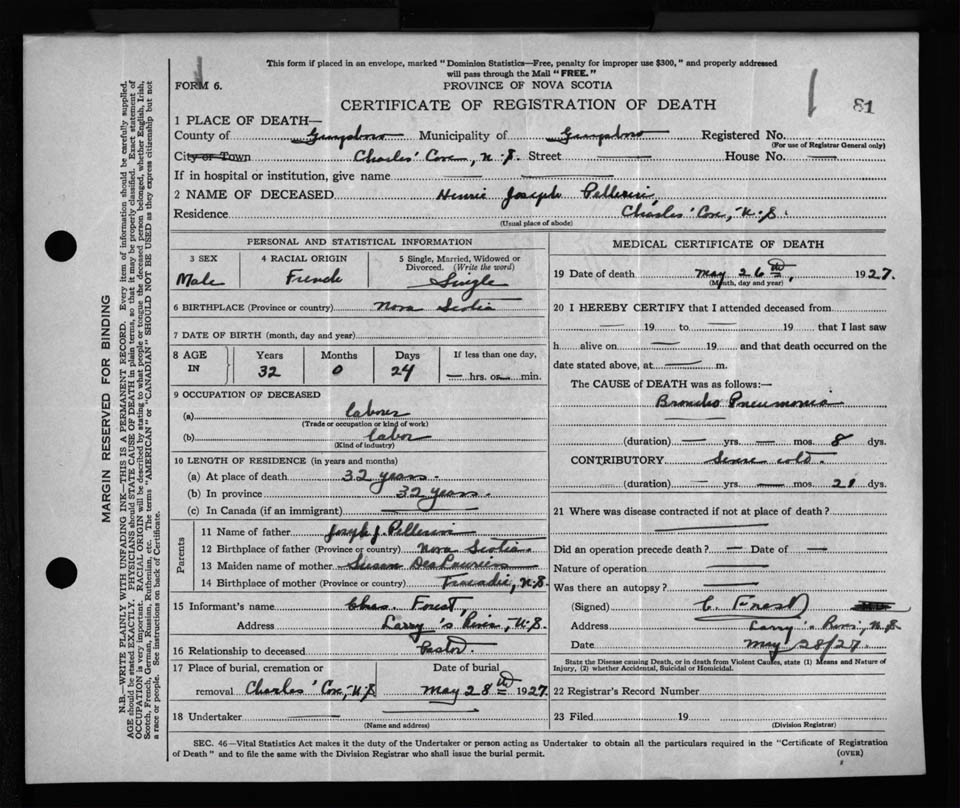 This form if placed in an envelope, marked "Dominion Statistics—Free, penalty for improper use $300," and properly addressed
will pass through the Mail "FREE."
FORM 6.
PROVINCE OF NOVA SCOTIA
81
CERTIFICATE OF REGISTRATION OF DEATH
1 PLACE OF DEATH—
County of Guysboro Municipality of Guysboro Registered No.
(For use of Registrar General only)
City or Town Charles' Cove, N.S. Street — House No. —
If in hospital or institution, give name — —
2 NAME OF DECEASED Henrie Joseph Pellerin
Residence Charles' Cove, N.S.
(Usual place of abode)
PERSONAL AND STATISTICAL INFORMATION
3 SEX 4 RACIAL ORIGIN 5 Single, Married, Widowed or
Divorced. (Write the word)
Male French Single
6 BIRTHPLACE (Province or country) Nova Scotia
7 DATE OF BIRTH (month, day and year)
8 AGE IN Years Months Days If less than one day,
32 0 24 — hrs. or — min.
9 OCCUPATION OF DECEASED
(a) laborer
(Trade or occupation or kind of work)
(b) labor
(Kind of industry)
10 LENGTH OF RESIDENCE (in years and months)
(a) At place of death 32 years.
(b) In province 32 years.
(c) In Canada (if an immigrant) —
Parents
11 Name of father Joseph J. Pellerin
12 Birthplace of father (Province or country) Nova Scotia
13 Maiden name of mother Susan DesLauriers
14 Birthplace of mother (Province or country) Tracadie, N.S.
15 Informant's name Chas. Forest,
Address Larry's River, N.S.
16 Relationship to deceased Pastor
17 Place of burial, cremation or Date of burial
removal Charles' Cove, N.S May 28th 1927
18 Undertaker —
(Name and address)
MEDICAL CERTIFICATE OF DEATH
19 Date of death May 26th, 1927.
(Month, day and year)
20 I HEREBY CERTIFY that I attended deceased from
— 19 to — 19 that I last saw
h alive on — 19 and that death occurred on the
date stated above, at — m.
The CAUSE of DEATH was as follows:—
Broncho Pneumonia
—
(duration) — yrs. — mos. 8 dys.
CONTRIBUTORY Severe cold.
(duration) — yrs. — mos. 21 dys.
21 Where was disease contracted if not at place of death?
—
Did an operation precede death? — Date of —
Nature of operation —
Was there an autopsy? —
(Signed) C. Forest
Address Larry's River, N.S.
Date May 28/27
State the Disease causing Death, or in death from Violent Causes, state (1) Means and Nature of
Injury, (2) whether Accidental, Suicidal or Homicidal.
22 Registrar's Record Number
23 Filed 19
(Division Registrar)
SEC. 46—Vital Statistics Act makes it the duty of the Undertaker or person acting as Undertaker to obtain all the particulars required in the "Certificate of Registration
of Death" and to file the same with the Division Registrar who shall issue the burial permit.
(OVER)
MARGIN RESERVED FOR BINDING
N.B.—WRITE PLAINLY WITH UNFADING INK—THIS IS A PERMANENT RECORD. Every item of information should be carefully supplied.
AGE should be stated EXACTLY. PHYSICIANS should STATE CAUSE OF DEATH in plain terms, so that it may be properly classified. Exact statement of
OCCUPATION is very important. RACIAL ORIGIN will be described by stating to what people or tongue the deceased person belonged, whether English, Irish,
Scotch, French, German, Russian, Ruthenian, etc. The terms "AMERICAN" or "CANADIAN" SHOULD NOT BE USED as they express citizenship but not
a race or people. See instructions on back of Certificate.